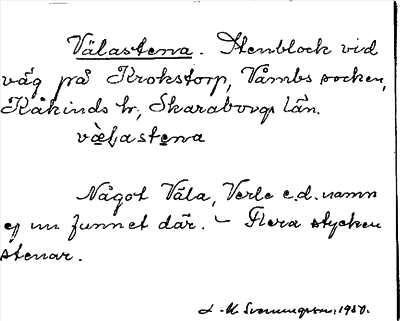 Välastena. Stenblock vid
väg på Krokstorp, Våmbs socken,
Kåkinds hr, Skaraborgs län.
vä̀lastena
Något Väla, Verle e.d. namn
ej nu funnet där. – Flera stycken
stenar.
1930.